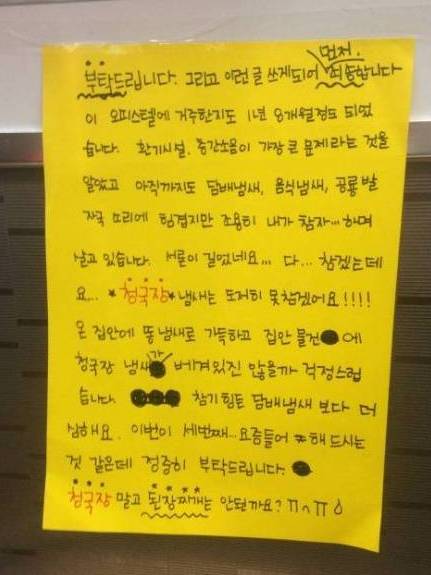 부탁드립니다. 그리고 이런 글 쓰게되어 먼저. 죄송합니다
이 오피스텔에 거주한지도 1년 8개월정도 되었
습니다. 환기시설, 층간소음이 가장 큰 문제라는 것을
알았고 아직까지도 담배냄새, 음식냄새, 공룡 발
자국 소리에 힘겹지만 조용히 내가 참자...하며
살고 있습니다. 서론이 길었네요... 다... 참겠는데
요... *청국장* 냄새는 도저히 못참겠어요!!!!
온 집안에 똥 냄새로 가득하고 집안 물건에
청국장 냄새가 베겨있진 않을까 걱정스럽
습니다. 참기 힘든 담배냄새 보다 더
심해요. 이번이 세번째...요즘들어 해 드시는
것 같은데 정중히 부탁드립니다.
청국장 말고 된장찌개는 안될까요? ㅠㅅㅠ